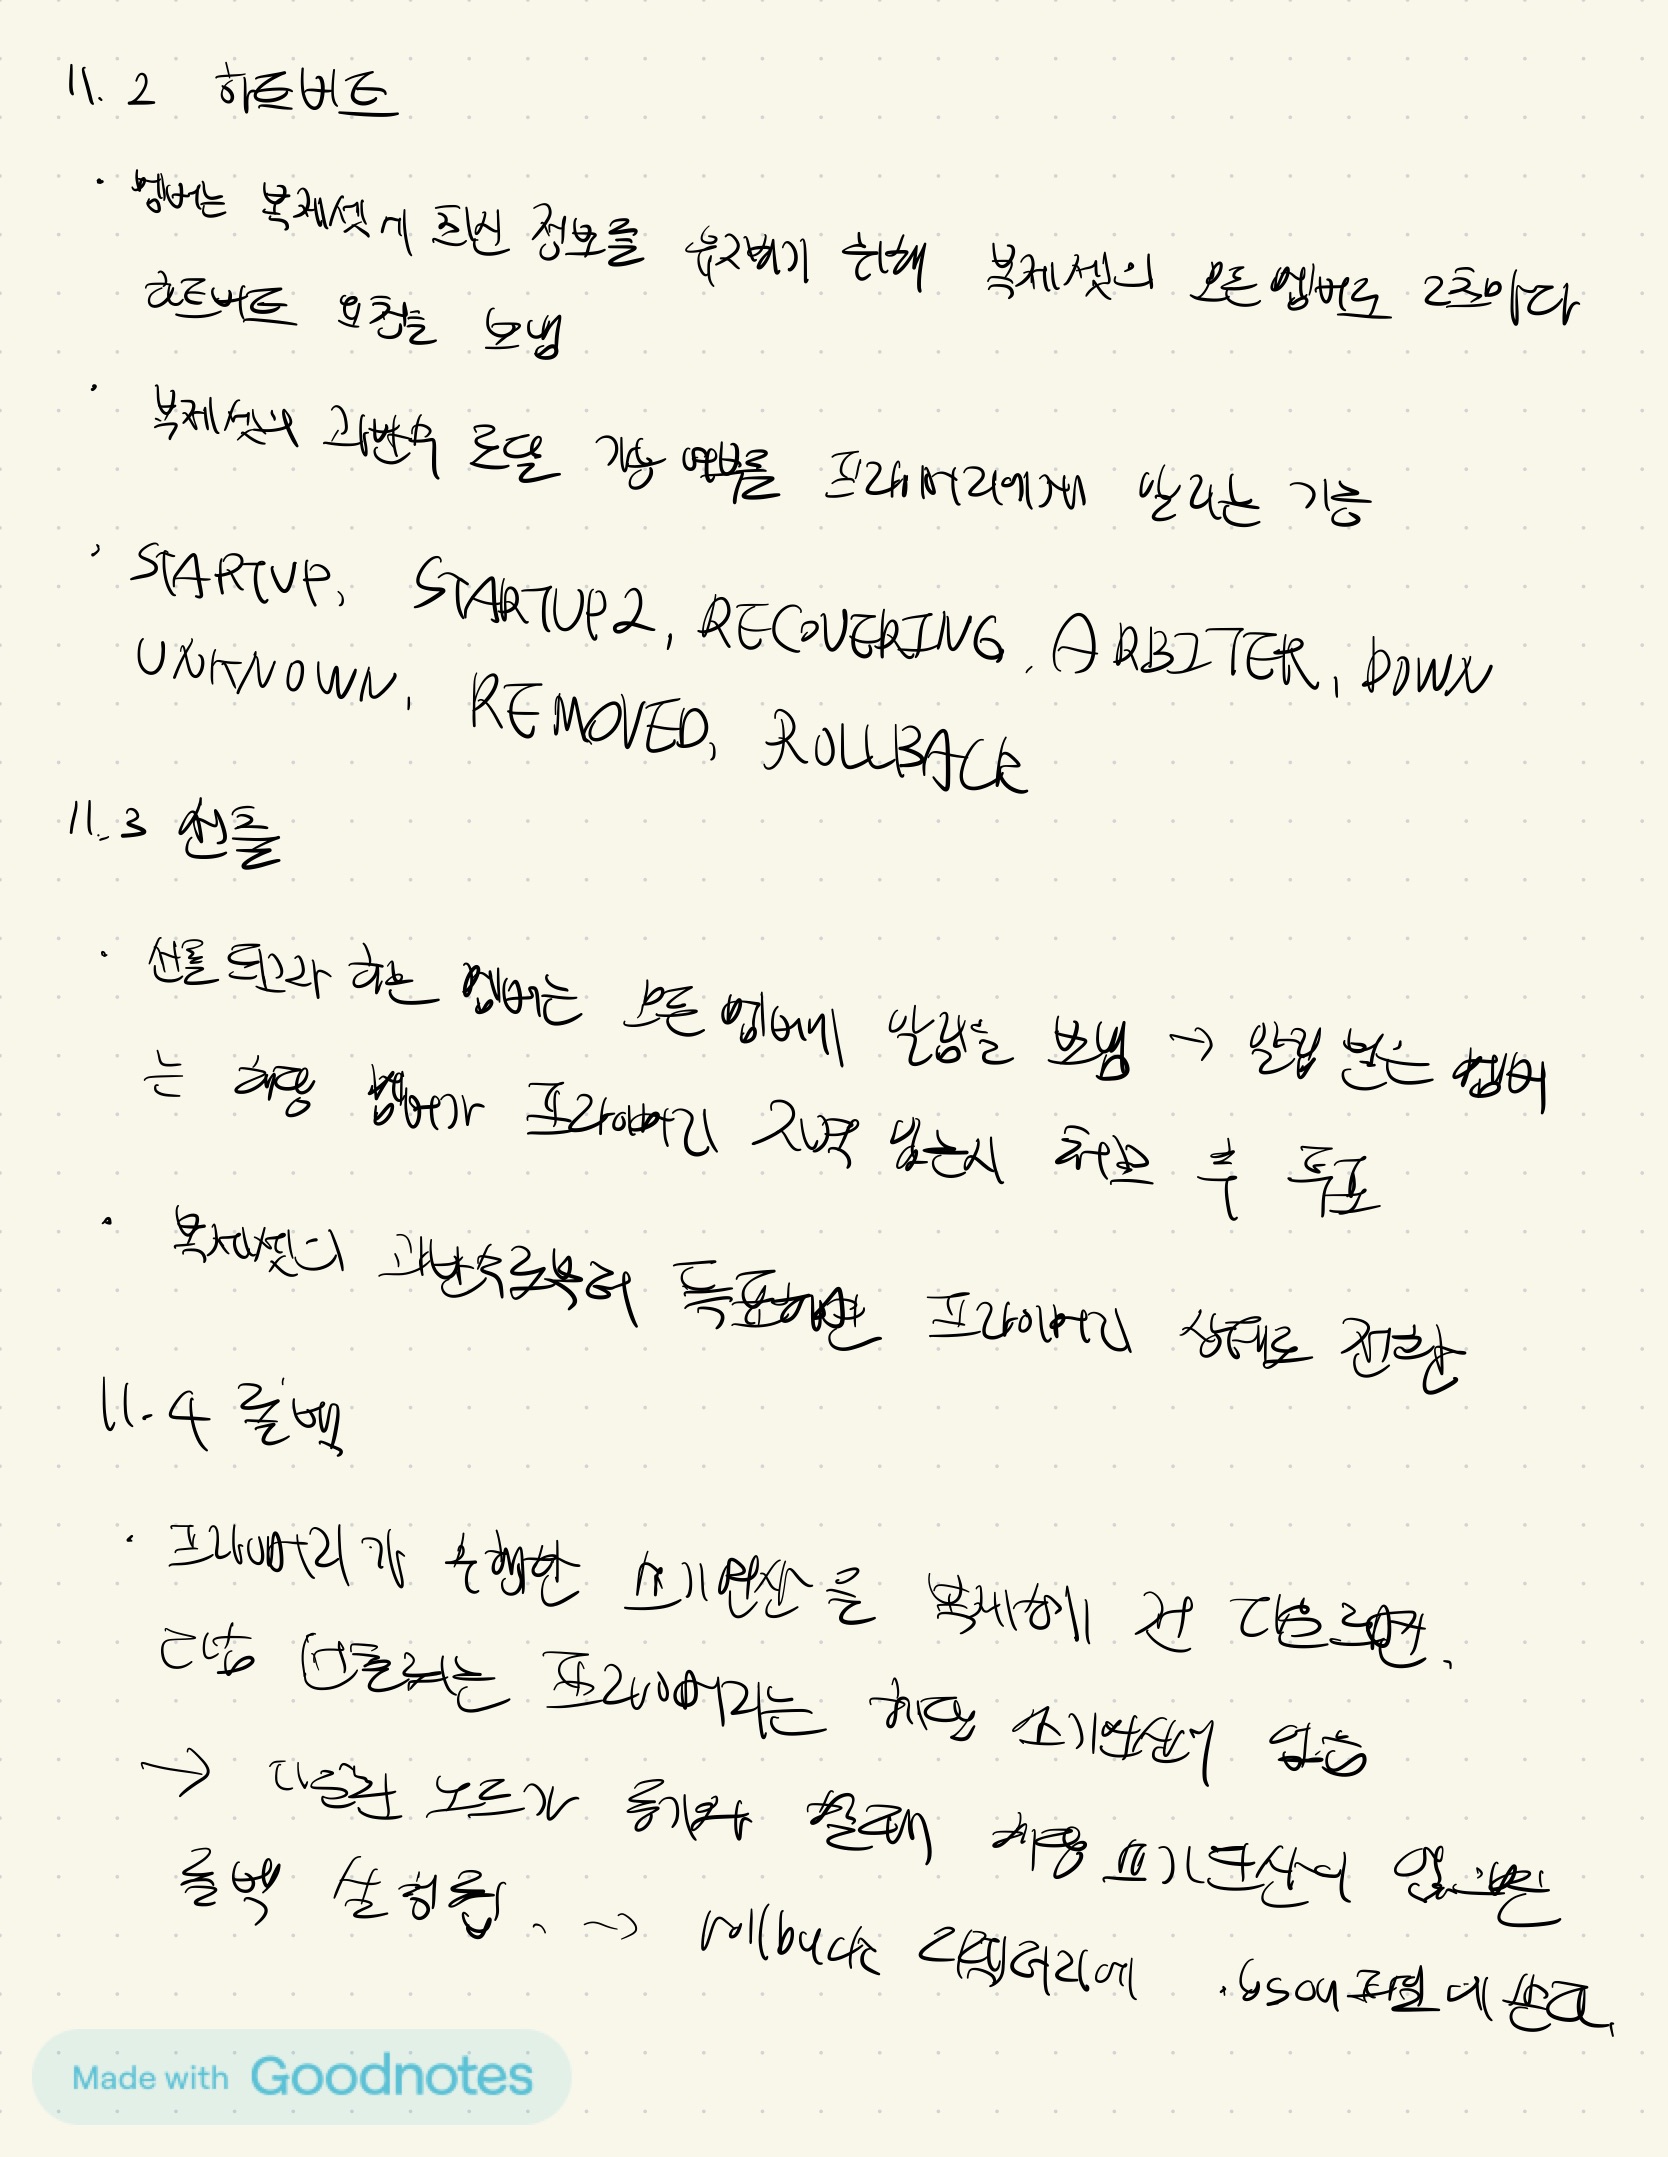 11.2 하트비트
· 멤버는 복제셋에 최신 정보를 유지하기 위해 복제셋의 모든 멤버로 2초마다
하트비트 요청을 보냄
· 복제셋의 과반수 도달 가능 여부를 프라이머리에게 알리는 기능
· STARTUP, STARTUP2, RECOVERING, ARBITER, DOWN
UNKNOWN, REMOVED, ROLLBACK
11.3 선출
· 선출되고자 하는 멤버는 모든 멤버에 알림을 보냄 → 알림 받은 멤버
는 해당 멤버가 프라이머리 자격 있는지 체크 후 투표
· 복제셋의 과반수로부터 득표하면 프라이머리 상태로 전환
11.4 롤백
· 프라이머리가 수행한 쓰기연산을 복제하기 전 다운되면,
다음 선출되는 프라이머리는 해당 쓰기연산이 없음
→ 다운된 노드가 동기화 할때 해당 쓰기연산이
롤백 실행됨. → rollback 디렉터리에 .bson파일에
Made with Goodnotes